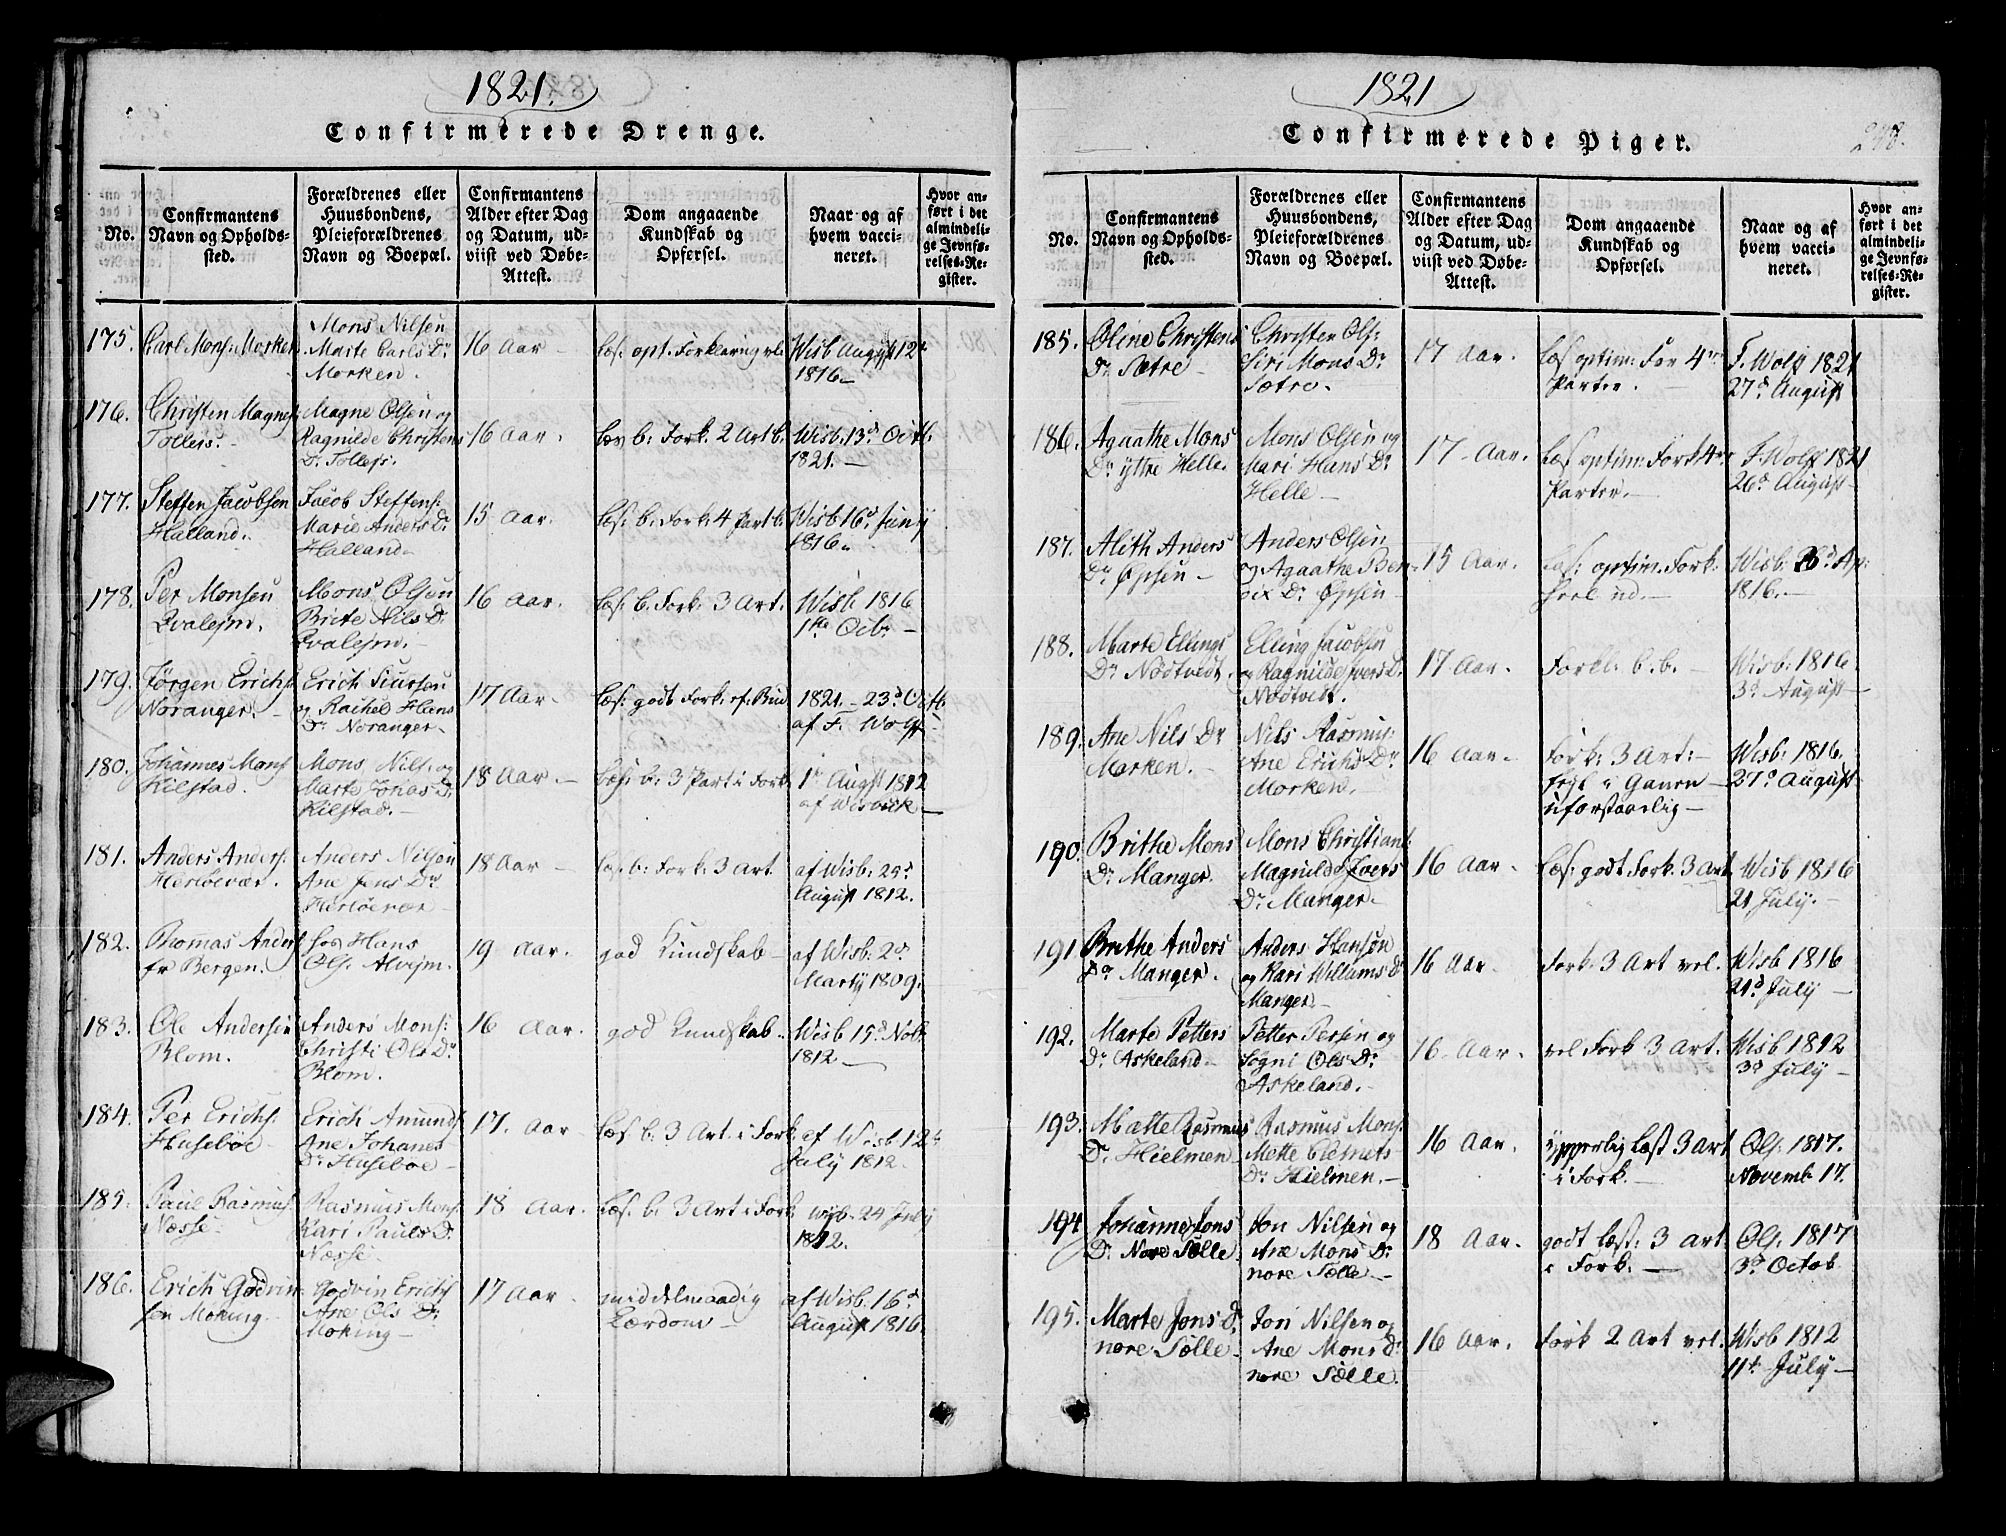 1821.
Confirmerede Drenge.
No.
Confirmantens
Navn og Opholds-
sted.
Forældrenes eller
Huusbondens,
Pleieforældrenes
Navn og Boepæl.
Confirmantens
Alder efter Dag
og Datum, ud-
viist ved Døbe-
Attest.
Dom angaaende
Kundskab og
Opførsel.
Naar og af
hvem vacci-
neret.
Hvor an-
ført i det
almindeli-
ge Jevnfø-
relses-Re-
gister.
175. Carl Mons: Morken
Mons Nilsen
Marte Carls Dr
Morken.
16 Aar -
Læs: opt. Forklaring vel
Wisb August 12te
1816 -
176. Christen Magnes
Tollefs. -
Magne Olsen og
Ragnilde Christens
Dr Tollefs.
16 Aar.
Læs b: Fork. 2 Art b.
Wisb. 13d Octb:
1821. -
177. Steffen Jacobsen
Halland.
Jacob Steffens:
Marie Anders Dr
Halland -
15 Aar.
Læs: b: Fork: 4 Part b.
Wisb 16d Juny
1816 -
178. Per Monsen
Qvalejm.
Mons Olsen
Birte Nils Dr
Qvalejm.
16 Aar.
Læs: b. Fork: 3 Art.
Wisb 1816
1ste Octbr -
179. Jørgen Erichs:
Noranger. -
Erich Siursen
og Rachel Hans
Dr Noranger -
17 Aar -
Læs: godt Fork: af: Bud
1821. - 23d Octb.
af F. Wolff -
180. Johannes Mons:
Kilstad.
Mons Nils: og
Marte Jonas Dr
Kilstad. -
18 Aar. -
Læs: b: 3 Part i Fork
1te Augst 1812
af Wisbech -
181. Anders Anders:
Herløevær.
Anders Nilsen
Ane Jens Dr
Herløevær -
18 Aar -
Læs: b: Fork: 3 Art
af Wisb: 29d
August 1812.
182. Thomas Anders:
fr Bergen.
hos Hans
Ols. Alvejm.
19 Aar.
god Kundskab -
af Wisb: 2d
Marty 1809.
183. Ole Andersen
Blom.
Anders Mons:
Christi Ols Dr
Blom.
16 Aar.
god Kundskab.
Wisb 15d Novb.
1812 -
184. Per Erichs:
Husebøe
Erich Amunds
Ane Johanes
Dr Husebøe -
17. Aar
Læs b: 3 Art. i Fork
af Wisb 12te
July 1812.
185. Paul Rasmus:
Næsse.
Rasmus Mons:
Kari Pauls Dr
Næsse -
18 Aar.
Læs: b: 3 Art i Fork
Wisb. 24 July
1812.
186. Erich Godvin
sen Moking.
Godvin Erichs
Ane Ols Dr
Moking -
17 Aar -
middelmaadig
Lærdom -
af Wisb. 16d
August 1816.
1821
Confirmerede Piger.
248.
No.
Confirmantens
Navn og Opholds-
sted.
Forældrenes eller
Huusbondens,
Pleieforældrenes
Navn og Boepæl.
Confirmantens
Alder efter Dag
og Datum, ud-
viist ved Døbe-
Attest.
Dom angaaende
Kundskab og
Opførsel.
Naar og af
hvem vacci-
neret.
Hvor an-
ført i det
almindeli-
ge Jevnfø-
relses-Re-
gister.
185. Oline Christens
Dr Sætre -
Christen Ols:
Siri Mons Dr
Sætre -
17 Aar.
Læs optim: For 4re
Parter. -
F. Wolff 1821
27d August
186. Agaathe Mons
Dr yttre Helle.
Mons Olsen og
Mari Hans Dr
Helle -
17 - Aar.
Læs optim: Fork 4re
Parter. -
F. Wolff 1821
26d August -
187. Alith Anders
Dr Øpsen -
Anders Olsen
og Agaathe Ben-
dix Dr Øpsen -
15 Aar.
Læs: optim. Fork:
Wisb: 26d Ap:
1816. -
188. Marte Ellings
Dr Nødtvedt.
Elling Jacobsen
og Ragnilde Ivers Dr
Nødtvedt.
17 Aar -
Forkl: b.b. -
Wisb: 1816.
3d August -
189. Ane Nils Dr
Morken. -
Nils Rasmus:
Ane Erichs Dr
Morken. -
16 Aar -
Fork: 3 Art: -
feyl i Ganen -
uforstaaelig -
Wisb: 1816.
27d August
190. Brithe Mons
Dr Manger.
Mons Christians:
Magnilde Ivers
Dr Manger. -
16 Aar -
Læs: godt Fork. 3 Art
Wisb 1816
21 July. -
191. Brithe Anders
Dr Manger.
Anders Hansøn
og Kari Willums Dr
Manger -
16 Aar -
Fork. 3 Art vel.
Wisb 1816
21d July -
192. Marte Petters
Dr Askeland -
Petter Persen og
Sogni Ols Dr
Askeland. -
16 - Aar.
vel Fork 3 Art.
Wisb 1812
3d July -
193. Mette Rasmus
Dr Hielmen.
Rasmus Mons:
Mette Clemets
Dr Hielmen. -
16 Aar.
ypperlig læst 3 Art
i Fork. -
Ols. 1817.
Novemb. 17.
194. Johanne Jons
Dr Nore Sælle.
Jon Nilsen og
Ane Mons Dr
nore Sælle -
18 Aar.
godt læst: 3 Art
i Fork. -
Ols. 1817
3d Octob
195. Marte Jons Dr
nore Sælle -
Jon Nilsen og
Ane Mons Dr
nore Sælle.
16 Aar.
Fork 2 Art vel.
Wisb 1812
11te July -